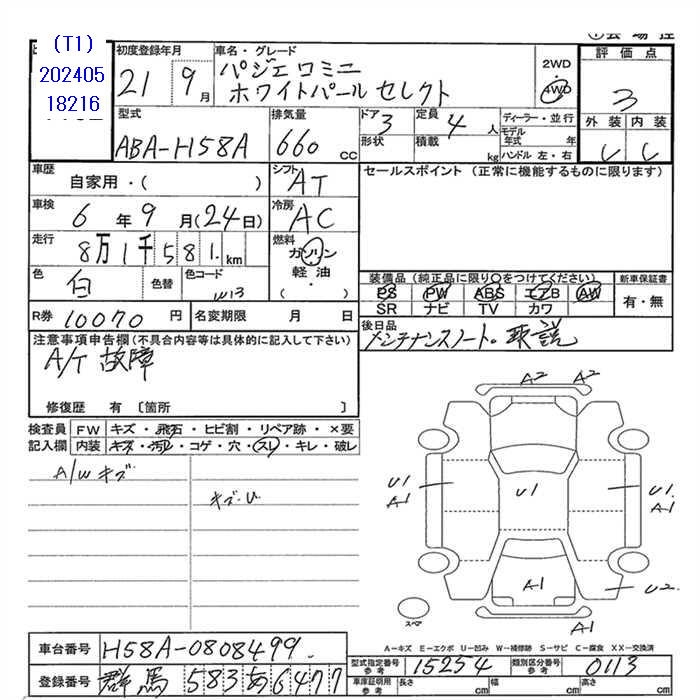 (T1)
202405
18216
初度登録年月
21 9月
車名・グレード
パジェロミニ
ホワイトパール セレクト
2WD
4WD
評価点
3
外装 内装
C C
型式
ABA-H58A
排気量
660 cc
ドア 3
形状
定員 4 人
積載 kg
ディーラー・並行
モデル年式 年
ハンドル 左・右
車歴
自家用・( )
シフト AT
セールスポイント (正常に機能するものに限ります)
車検 6年9月(24日)
冷房 AC
走行 8万1千581 km
燃料 ガソリン
軽油
( ・ )
色 白 色替 色コード W13
装備品 (純正品に限り○をつけてください)
PS PW ABS エアB AW
SR ナビ TV カワ
新車保証書
有・無
R券 10070円
名変期限 月 日
後日品
メンテナンスノート。取説
注意事項申告欄(不具合内容等は具体的に記入して下さい)
A/T 故障
修復歴 有 〔箇所 〕
検査員 FW キズ・飛石・ヒビ割・リペア跡・×要
記入欄 内装 キズ・汚レ・コゲ・穴・スレ・キレ・破レ
A/W キズ
キズ・U
A2 A2
U1
A1
U1
U1.
A1
A1
U2
A1
スペア
A-キズ E-エクボ U-凹み W-補修跡 S-サビ C-腐食 XX-交換済
車台番号 H58A-0808499.
登録番号 群馬 583 あ 6477
型式指定番号 参考 15254
類別区分番号 参考 0113
車庫証明用 参考 長さ cm 幅 cm 高さ cm